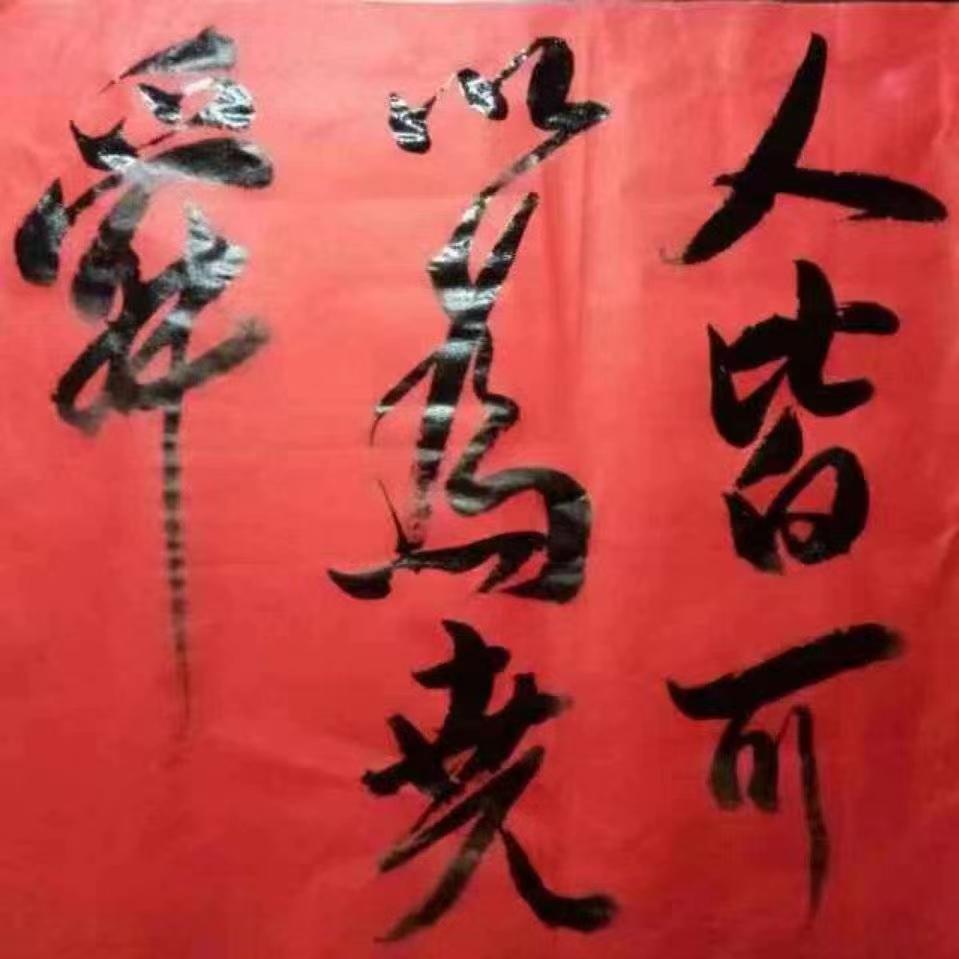 人皆可
以為堯
舜